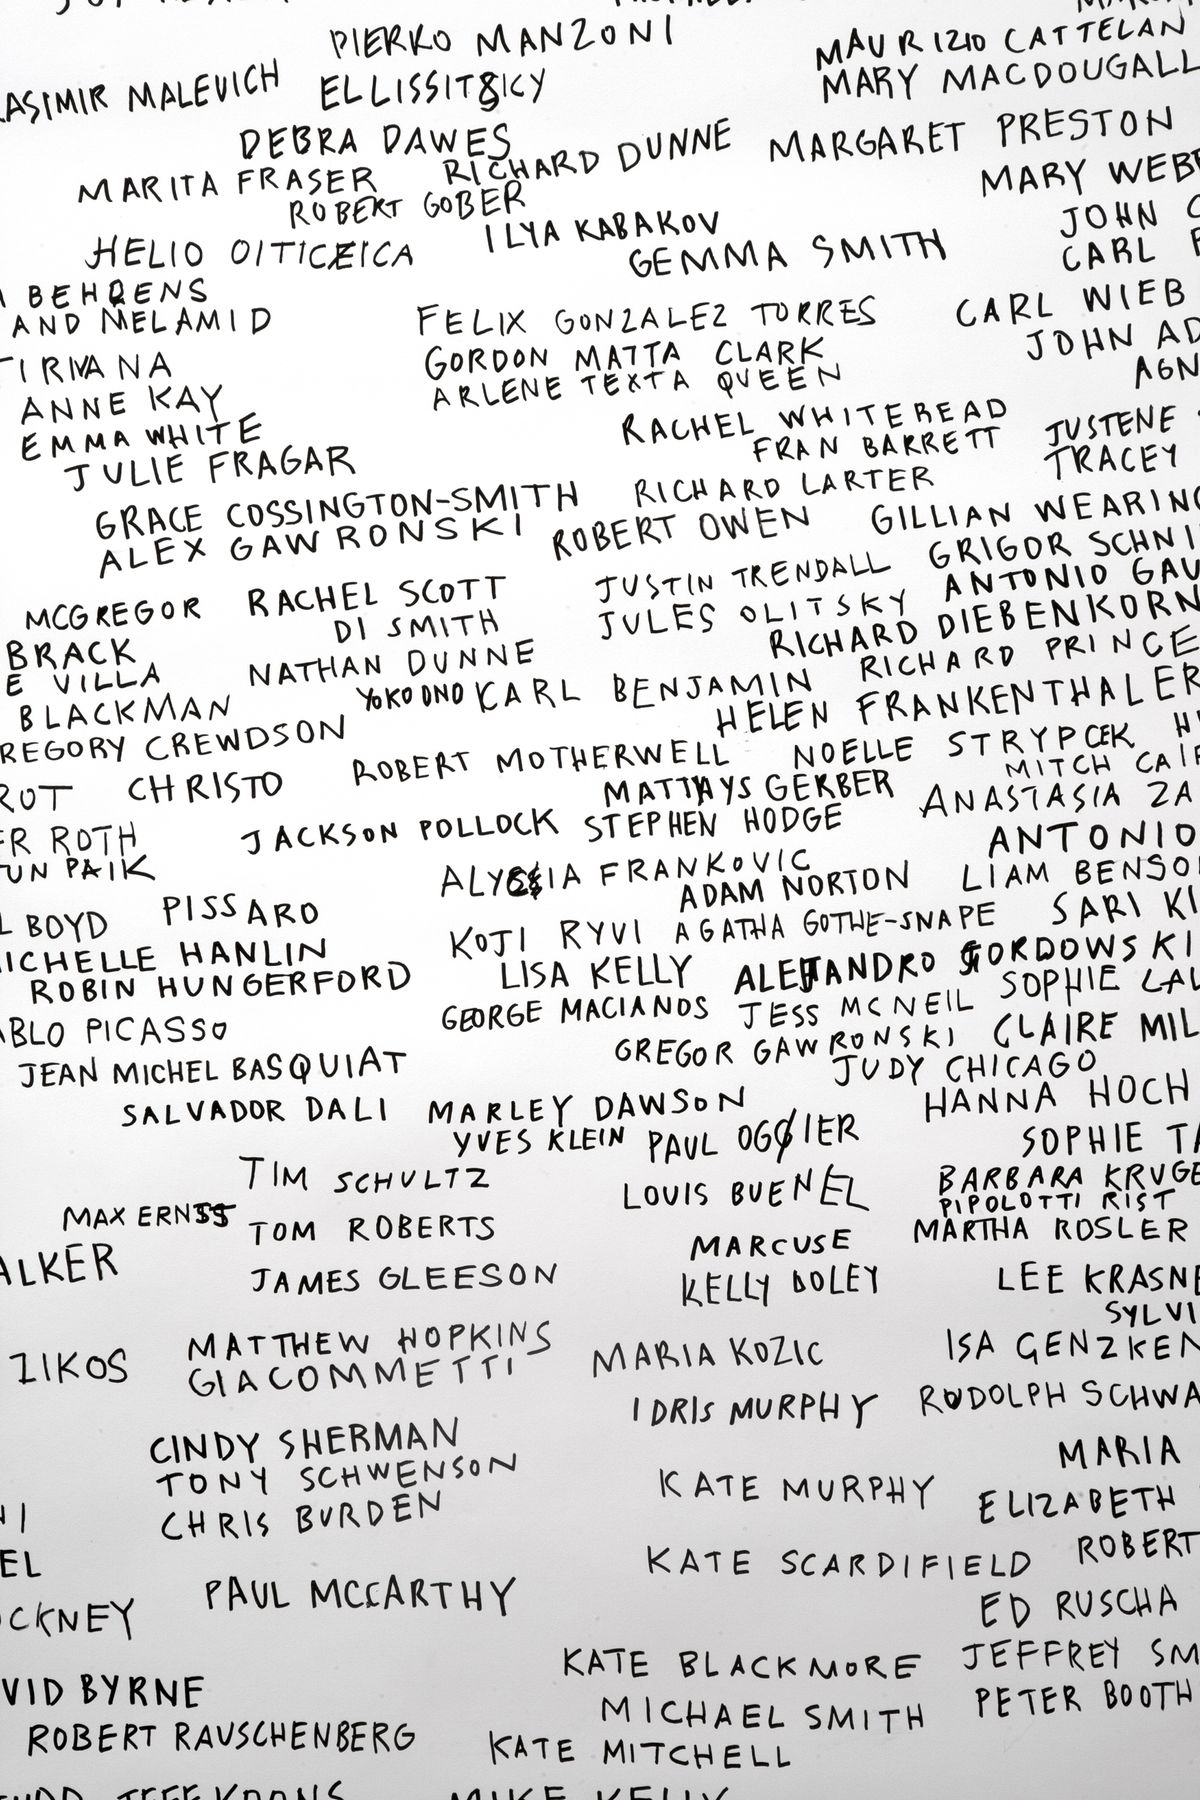 PIERRO MANZONI
MAURIZIO CATTELAN
KASIMIR MALEVICH
ELLISSITSKY
MARY MACDOUGALL
DEBRA DAWES
RICHARD DUNNE
MARGARET PRESTON
MARITA FRASER
ROBERT GOBER
MARY WEBB
HELIO OITICEICA
ILYA KABAKOV
JOHN
GEMMA SMITH
CARL
BEHRENS
AND MELAMID
FELIX GONZALEZ TORRES
CARL WIEB
TIRIVANA
GORDON MATTA CLARK
JOHN AD
ANNE KAY
ARLENE TEXTA QUEEN
AGN
EMMA WHITE
RACHEL WHITEREAD
JUSTENE
JULIE FRAGAR
FRAN BARRETT
TRACEY
GRACE COSSINGTON-SMITH
RICHARD LARTER
ALEX GAWRONSKI
ROBERT OWEN
GILLIAN WEARING
GRIGOR SCHNI
MCGREGOR
RACHEL SCOTT
JUSTIN TRENDALL
ANTONIO GAU
BRACK
DI SMITH
JULES OLITSKY
RICHARD DIEBENKORN
E VILLA
NATHAN DUNNE
RICHARD PRINCE
BLACKMAN
YOKO ONO
KARL BENJAMIN
HELEN FRANKENTHALER
REGORY CREWDSON
ROBERT MOTHERWELL
NOELLE STRYPCEK
ROT
CHRISTO
MATTHYS GERBER
MITCH CAIR
ER ROTH
JACKSON POLLOCK
STEPHEN HODGE
ANASTASIA ZA
UN PAIK
ALYSSIA FRANKOVIC
ANTONIO
L BOYD
PISSARO
ADAM NORTON
LIAM BENSO
ICHELLE HANLIN
KOJI RYUI
AGATHA GOTHE-SNAPE
SARI KI
ROBIN HUNGERFORD
LISA KELLY
ALEJANDRO JORDOWSKI
ABLO PICASSO
GEORGE MACIANOS
JESS MCNEIL
SOPHIE LAU
JEAN MICHEL BASQUIAT
GREGOR GAWRONSKI
CLAIRE MIL
JUDY CHICAGO
SALVADOR DALI
MARLEY DAWSON
HANNA HOCH
YVES KLEIN
PAUL OGGIER
SOPHIE TA
TIM SCHULTZ
LOUIS BUENEL
BARBARA KRUGE
MAX ERNST
TOM ROBERTS
PIPOLOTTI RIST
ALKER
MARCUSE
MARTHA ROSLER
JAMES GLEESON
KELLY DOLEY
LEE KRASNE
SYLVI
MATTHEW HOPKINS
ZIKOS
GIACOMMETTI
MARIA KOZIC
ISA GENZKEN
IDRIS MURPHY
RUDOLPH SCHWA
CINDY SHERMAN
MARIA
TONY SCHWENSON
KATE MURPHY
ELIZABETH
CHRIS BURDEN
EL
KATE SCARDIFIELD
ROBERT
PAUL MCCARTHY
CKNEY
ED RUSCHA
KATE BLACKMORE
JEFFREY SM
VID BYRNE
MICHAEL SMITH
PETER BOOTH
ROBERT RAUSCHENBERG
KATE MITCHELL
JEFF KOONS
MIKE KELLY